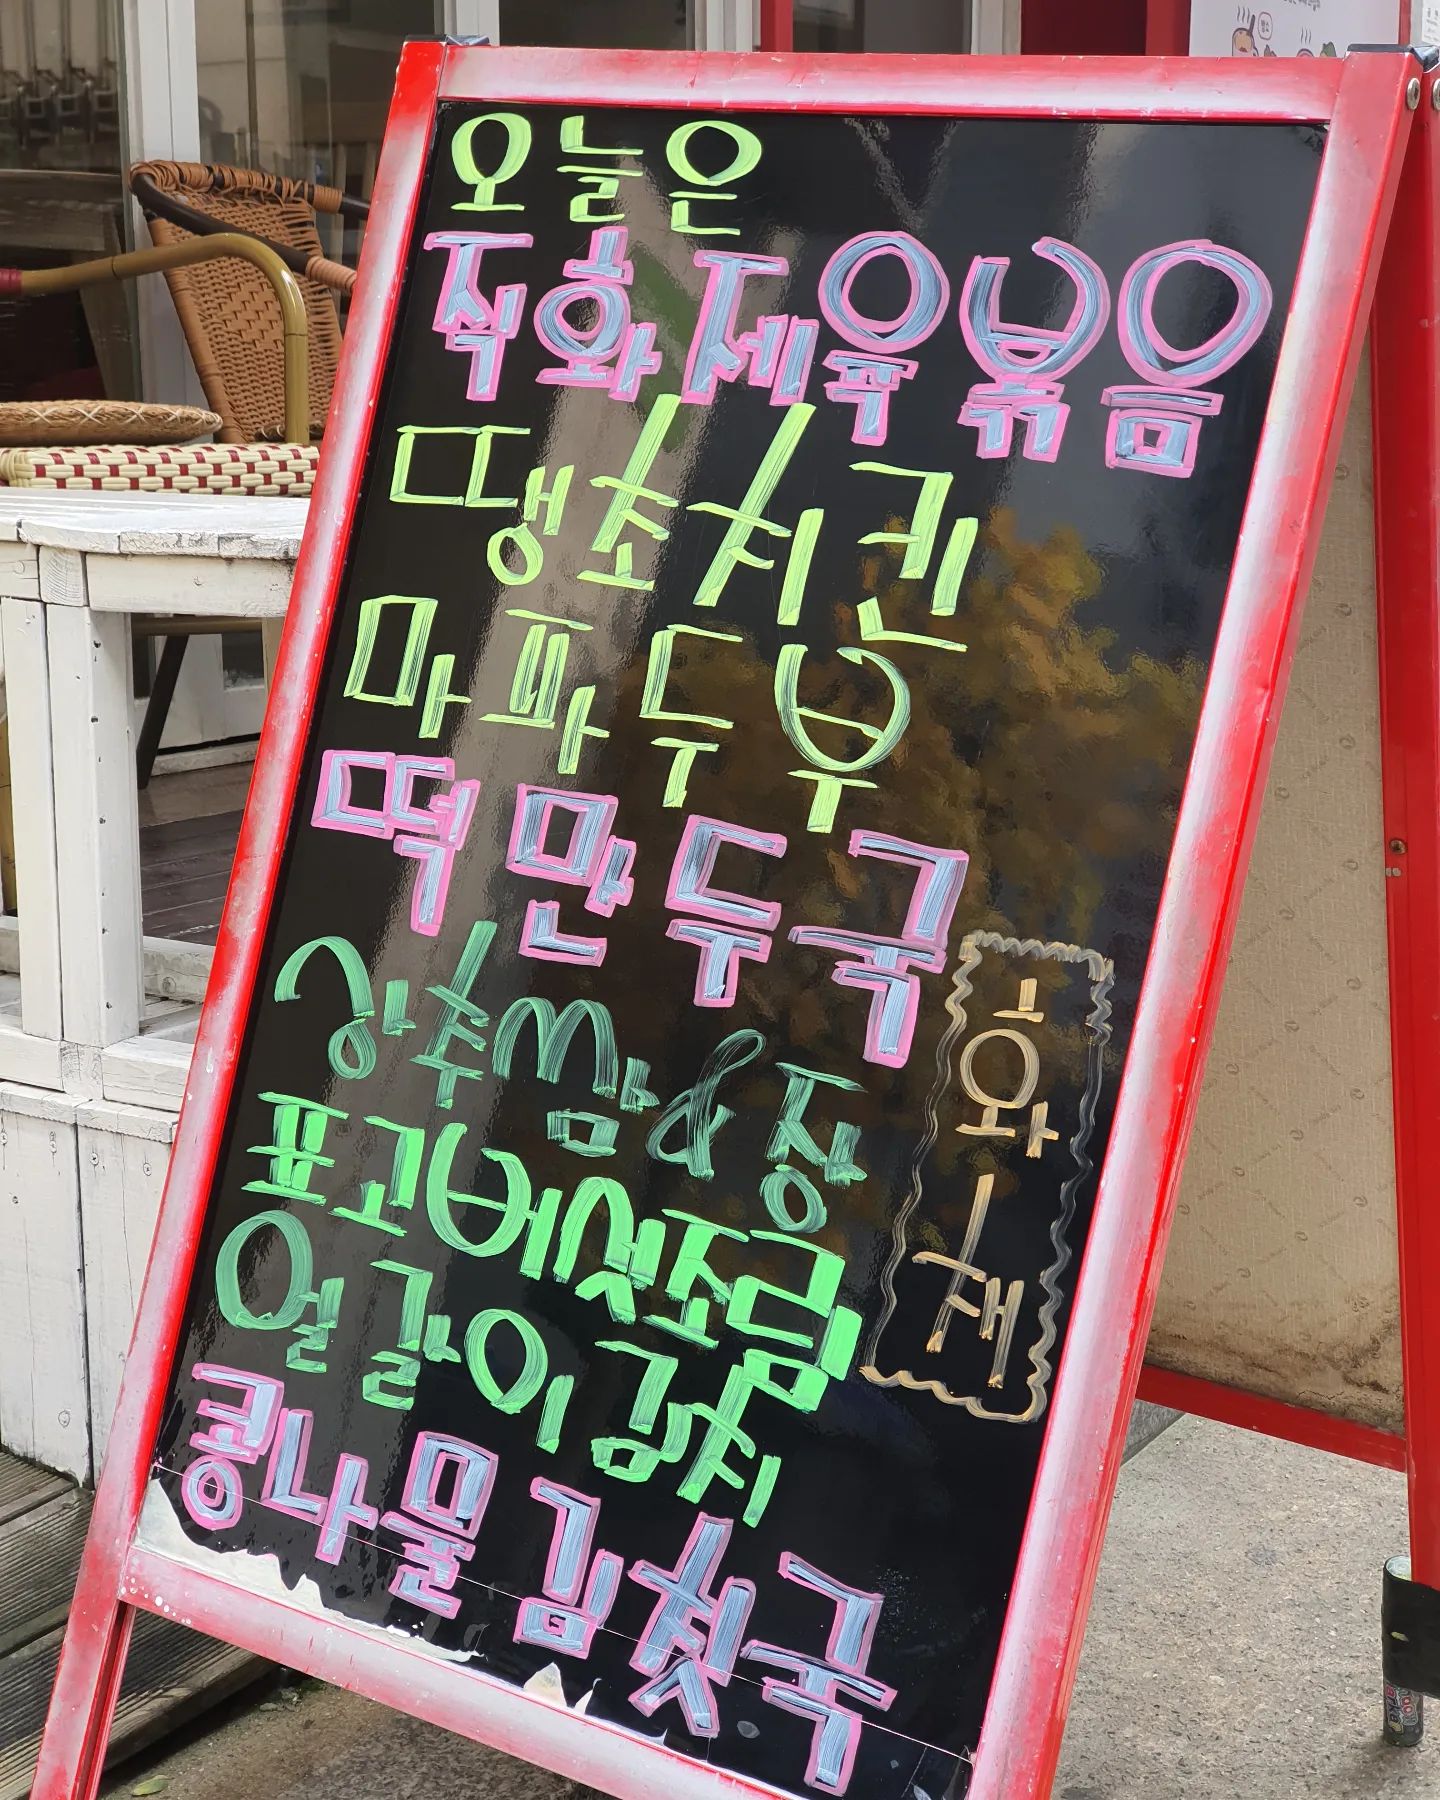 오늘은
직화제육볶음
땡초치킨
마파두부
떡만두국
상추쌈&장
표고버섯조림
얼갈이김치
콩나물김칫국
화
재